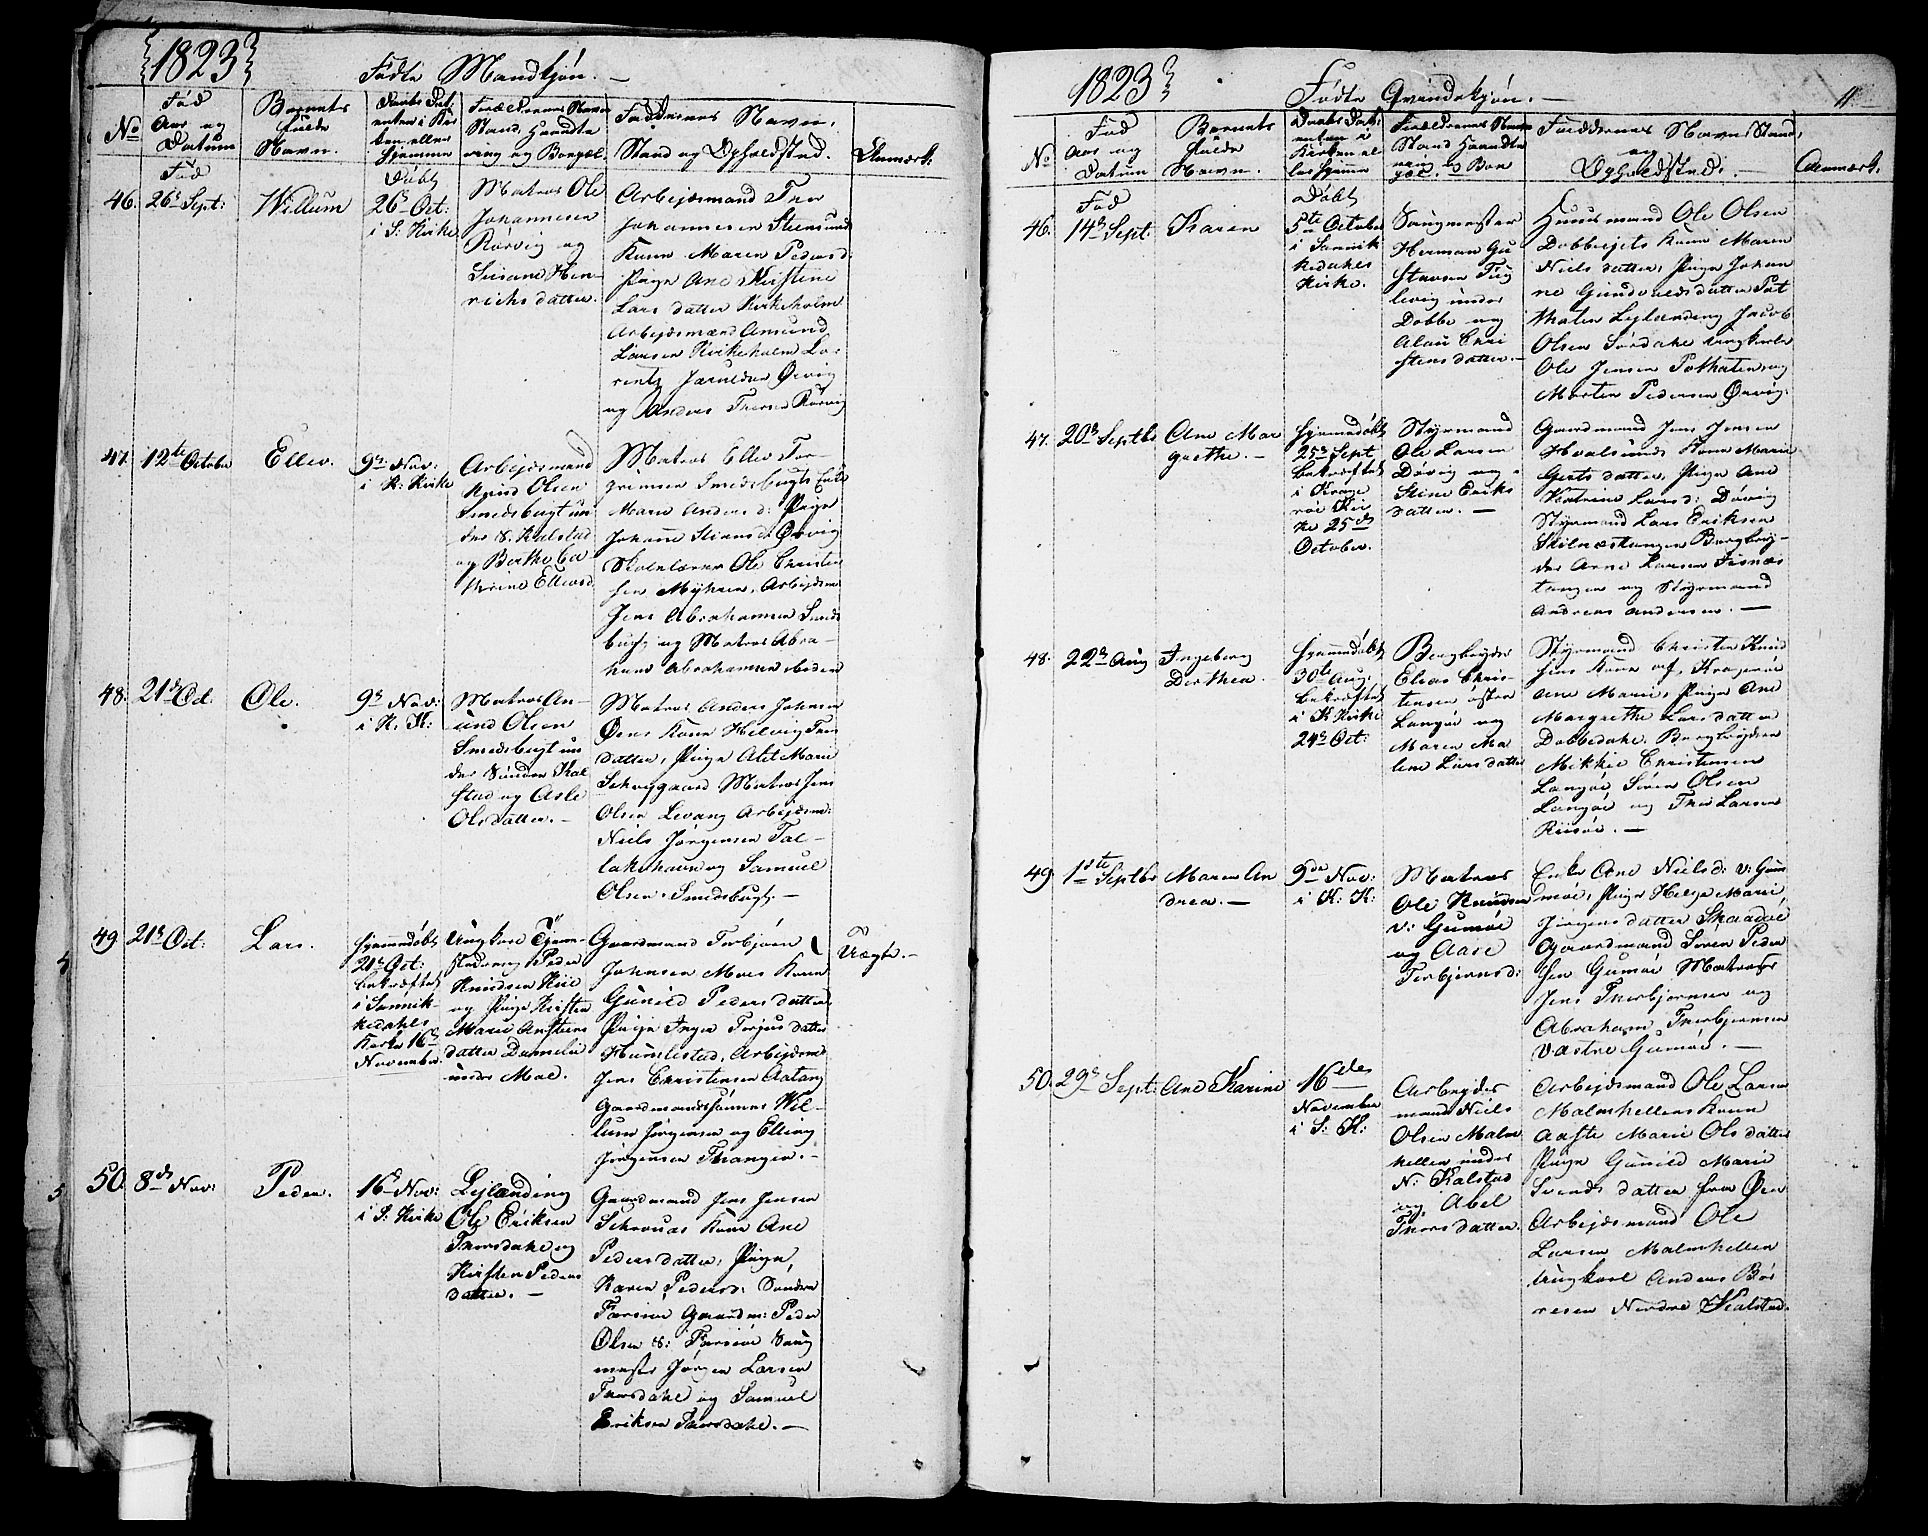 1823
Födte Mandkjön. —
No
Fød
Aar og
Datum
Barnets
fulde
Navn.
Daabs Dat:
enten i Kir
ken eller
hjemme
Forældrenes Navn
Stand, Haandte
ring og Bopæl.
Faddernes Navn,
Stand og Opholdsted.
Anmærk:
Fød
Döbt
46. 26de Sept:
Willum
26de Oct:
i S: Kirke
Matros Ole
Johannesen
Rörvig og
Susane Hen
richsdatter.
Arbejdsmand Thor
Johannesen Steensund
Kone Maren Pedersd:
Pige Ane Kirstine
Larsdatter Kirkeholm
Arbejdsmænd Amund
Larsen Kirkeholm Lo-
rentz Örvig
og Anders Thorsen Rörvig
47. 12te October
Ellev.
9de Nov:
i K: Kirke
Arbejdsmand
Knud Olsen
Smedsbugt un
der S. Kalstad
og Birthe Ca
thrine Ellevsd
Matros Ellev Tor-
grimsen Smedsbugts Enke
Maren Andersd: Pige
Johanne Örvig
Skolelærer Ole Christen
sen Myhren, Arbejdsm
Jens Abrahamsen Smeds
bugt og Matros Abra-
ham Abrahamsen
48. 21de Oct.
Ole.
9de Nov:
i K. K:
Matros An-
und Olsen
Smedsbugt un
der Söndre Kal
stad og Asle
Olsdatter. —
Matros Anders Johnsen
Öens Kone Helvig
datter, Pige Alet Marie
Matros Jens
Olsen Levang Arbejdsm:
Niels Jörgensen Tal-
lakshavn og Samuel
Olsen Smedsbugt. —
49 21de Oct:
Lars.
hjemmedöbt
21de Oct:
bekræftet
i Sannik-
kedahls
Kirke 16de
November
Ungkarl Tjene-
stedreng Peder
Knudsen Kiil
og Pige Kirsten
Marie
datter
under Moe.
Gaardmand Torbjörn
Johnsen Moes Kone
Gunild Pedersdatter
Pige Inger Torjusdatter
Humlestad, Arbejdsm
Jens Christensen Aatang
Gaardmandssönnerne Wil-
lum Jörgensen og Elling
Jörgensen Thangen. —
Uægte. —
4
5
50. 8de Nov:
Peder.
16de Nov:
i S: Kirke
Lejlænding
Ole Eriksen
Thorsdahl og
Kirsten Peders
datter. —
Gaardmand Jens Jensen
Kone Ane
Pedersdatter, Pige
Karen Pedersd: Söndre
Farsiöe Gaardm: Peder
Olsen S: Farsiöe Saug
mester Jörgen Larsen
Thorsdahl og Samuel
Eriksen Thorsdahl. —
1823
Födte Qvindekjön. —
11
No
Fød
Aar og
Datum
Barnets
fulde
Navn.
Daabs Dat:
enten i
Kirken el
ler hjemme
Forældrenes Navn
Stand Haandte
ring og Bo
pæl.
Faddernes Navn Stand,
og
Opholdsted.
Anmærk.
Fød
Döbt
46. 14de Sept:
Karen
5te October
i Sannik
kedahls
Kirke.
Saugmester
Herman Gu
stavsen
under
Dobbe og
Alau Chri
stensdatter. —
Huusmand Ole Olsen
Kone Maren
Nielsdatter, Pige Johan
ne Gundersdatter
Lejlænding Jacob
Olsen Sördahl Ungkarle
Ole Jensen og
Morten Pedersen Örvig
47. 20de Septbr
Ane Mar
grethe. —
hjemmedöbt
25de Sept
bekræftet
i Krage
röe Kir
ke 25de
October.
Styrmand
Ole Larsen
Dövig og
Stine Eriks
datter. —
Gaardmand Jens Jensen
Hvalsunds Kone Maria
Gertsdatter, Pige Ane
Katrine Larsd: Dövig
Styrmand Lars Eriksen
Skilnæstangen Bergbyg-
der Arne Larsen Fisnæs
tangen og Styrmand
Andreas Andersen. —
48. 22de Aug
Ingeborg
Dorthea.
hjemmedöbt
30te Aug:
bekræftet
i K Kirke
24de Oct:
Bergbygder
Elias Chris-
tensen östre
Langöe og
Maren Ma
lene Larsdatter
Styrmand Christen Knud
sens Kone af Krageröe
Ane Marie, Pige Ane
Margrethe Larsdatter
Dobbedahl, Bergbygdere
Mikkel Christensen
Langöe Sören Olsen
Langöe og Thor Larsen
Riisöe. —
49. 1ste Septbr
Maren An
drea. —
9de Nov:
i K: K:
Matros
Ole Knudsen
v: Gumöe
og Aase
Torbjörnsd:
Enke Ane Nielsd: v: Gum
möe, Pige Helge Marie
Jörgensdatter Skaadöe
Gaardmand Sören Peder
sen Gumöe Matroser
Jens Thorbjörnsen og
Abraham Thorbjörnsen
Vestre Gumöe. —
50. 29de Sept:
Ane Karine
16de
November
i S: K:
Arbeyds
mand Niels
Olsen Malm
hellen under
N: Kalstad
og Abel
Thorsdatter.
Arbejdsmand Ole Larsen
Malmhellens Kone
Aaste Marie Olsdatter
Pige Gunild Marie
Svendsdatter fra Öen
Arbejdsmand Ole
Larsen Malmhellen
Ungkarl Anders Bör
resen Nordre Kalstad.